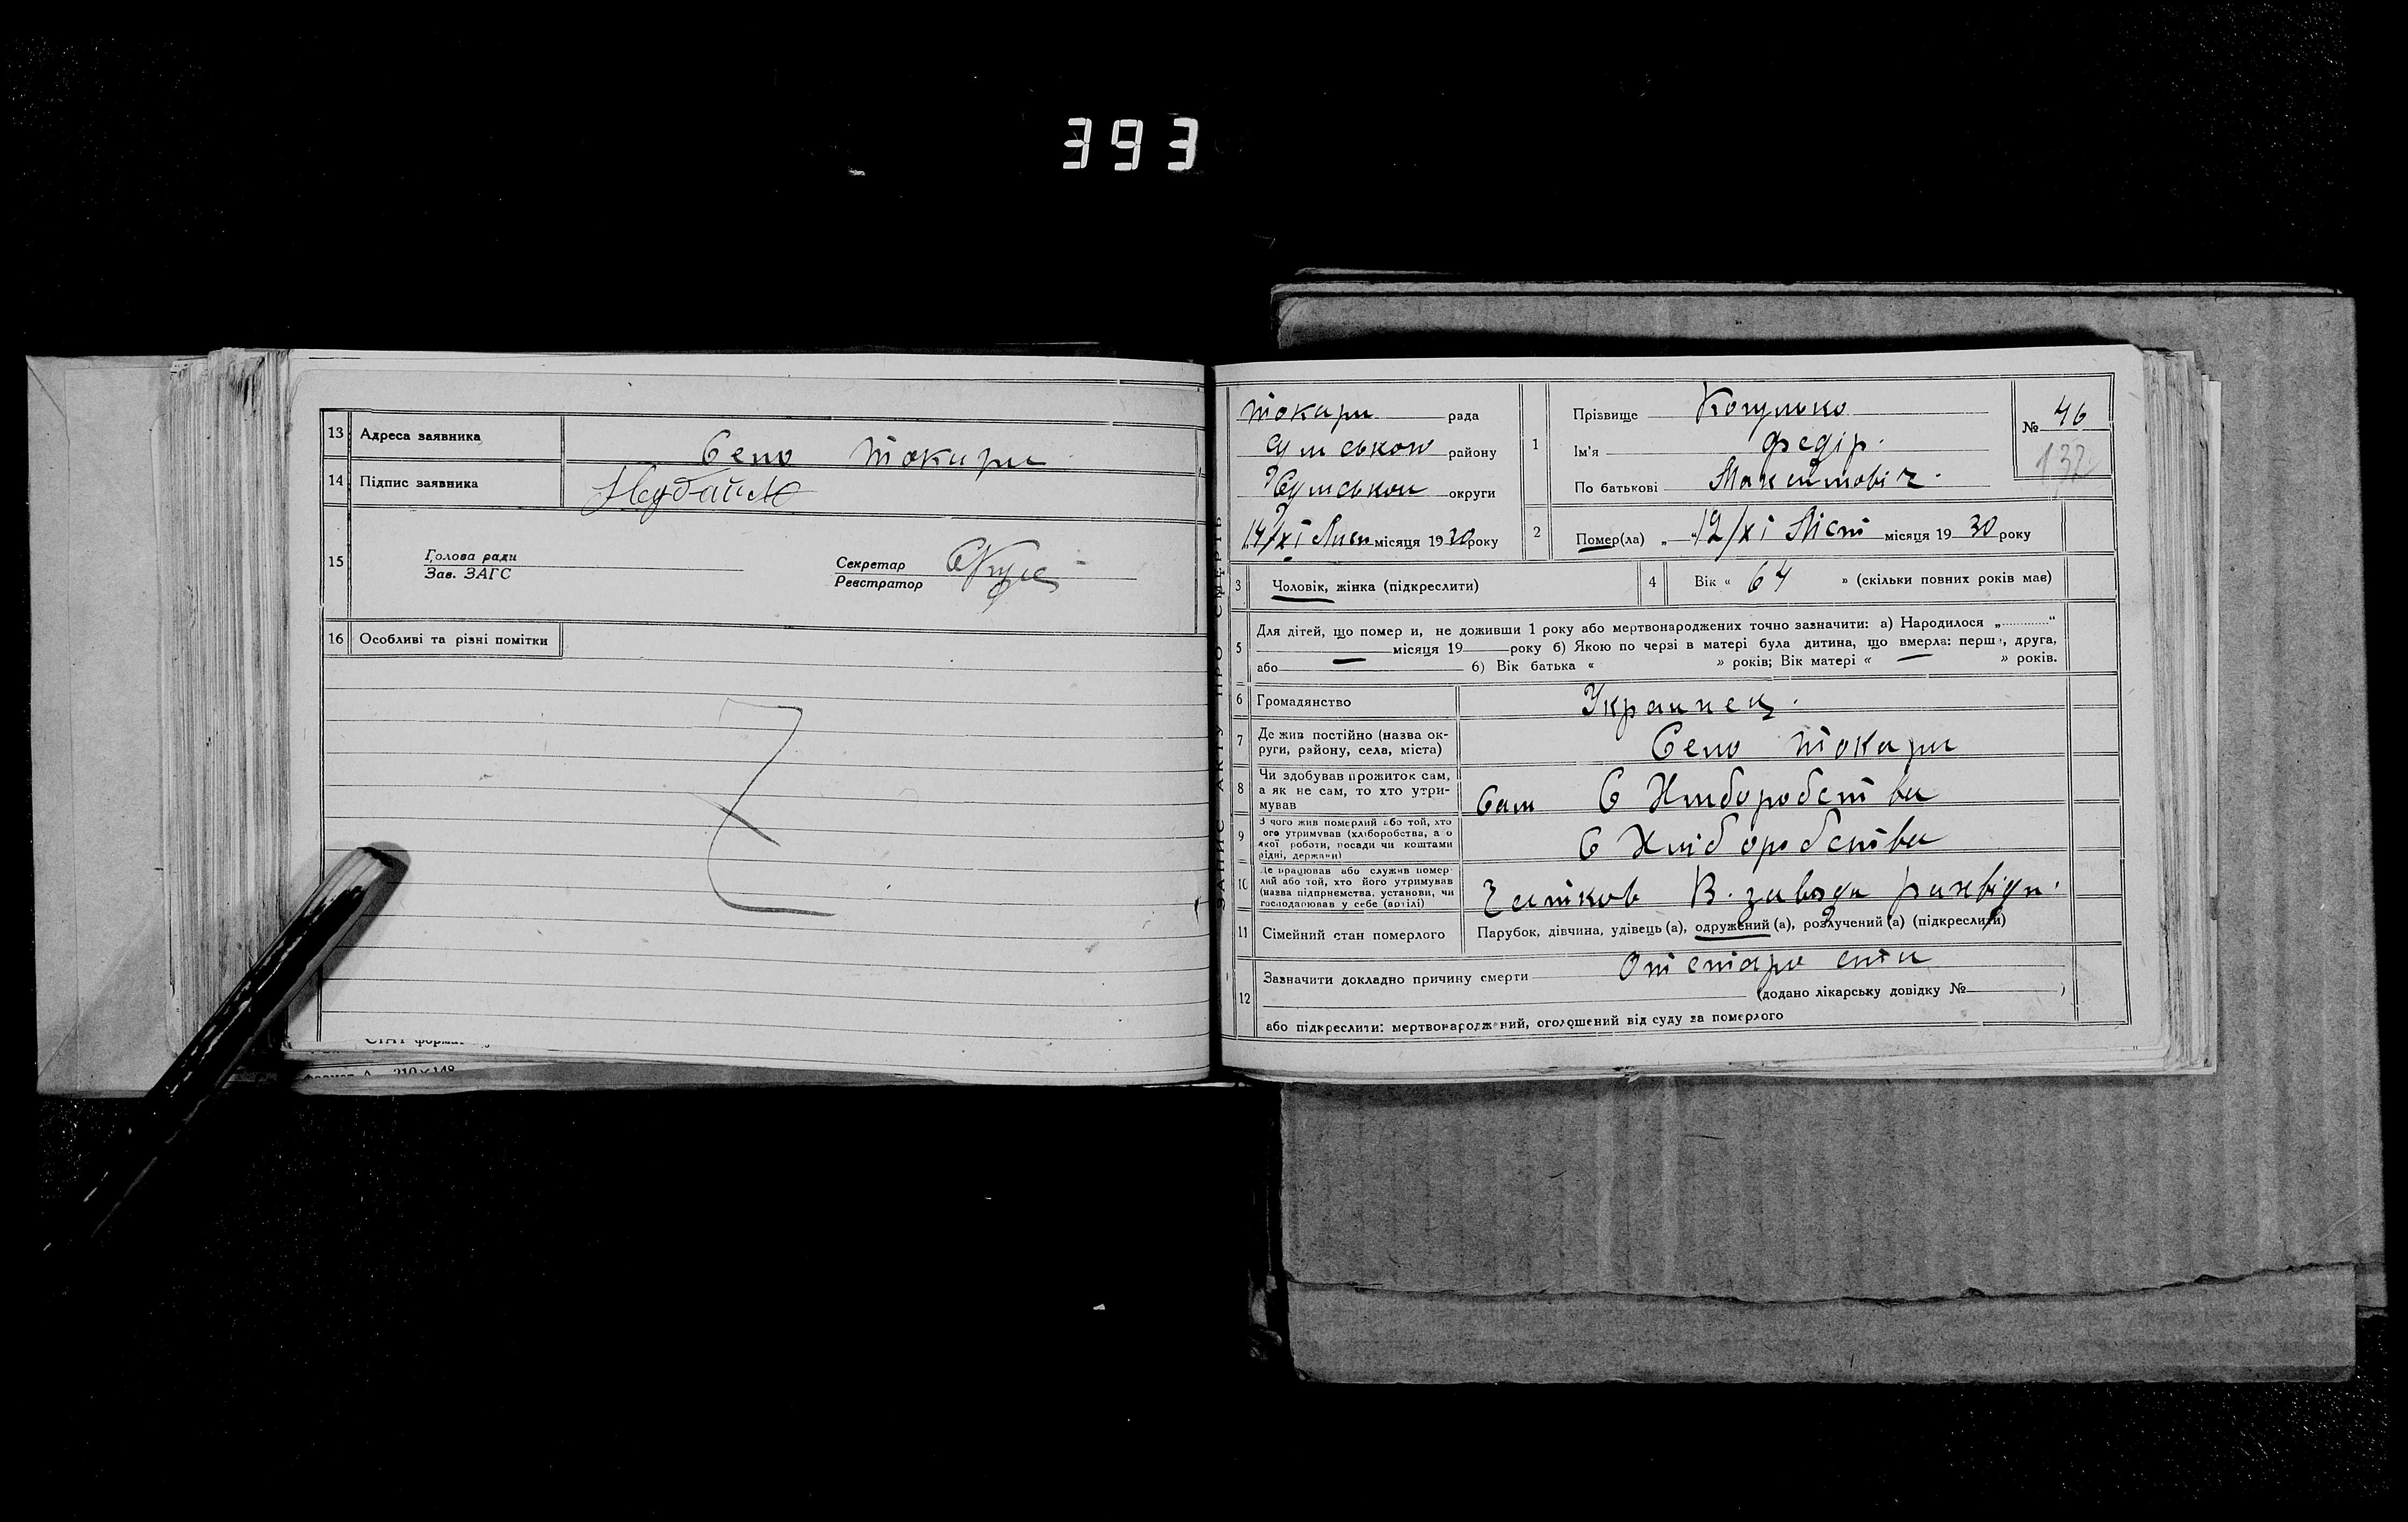 393
13 Адреса заявника Село Токари
14 Підпис заявника
15 Голова ради
Зав. ЗАГС
Секретар
Реєстратор
16 Особливі та різні помітки
ЗАПИС АКТУ ПРО СМЕРТЬ
Токари рада
Сумськой району
Сумськои округи
14/XI Лист місяця 1930 року
1 Прізвище
Ім'я Федір.
По батькові Максимовіч.
№ 46
132
2 Помер(ла) „ 12/XI Ліст місяця 19 30 року
3 Чоловік, жінка (підкреслити)
4 Вік « 64 » (скільки повних років має)
5 Для дітей, що помер и, не доживши 1 року або мертвонароджених точно зазначити: а) Народилося „ “
місяця 19 року б) Якою по черзі в матері була дитина, що вмерла: перша, друга,
або б) Вік батька « » років; Вік матері « » років.
6 Громадянство Украинец.
7 Де жив постійно (назва ок-
руги, району, села, міста) Село Токари
8 Чи здобував прожиток сам,
а як не сам, то хто утри-
мував Сам С Хлиборобства
9 З чого жив померлий або той, хто
ого утримував (хліборобства, а о
якої роботи, посади чи коштами
рідні, держави) С Хліборобства
10 Де працював або служив помер-
лий або той, хто його утримував
(назва підприємства, установи, чи
господарював у себе (артілі)
11 Сімейний стан померлого Парубок, дівчина, удівець (а), одружений (а), розлучений (а) (підкреслити)
12 Зазначити докладно причину смерти От старости
(додано лікарську довідку № )
або підкреслити: мертвонароджений, оголошений від суду за померлого